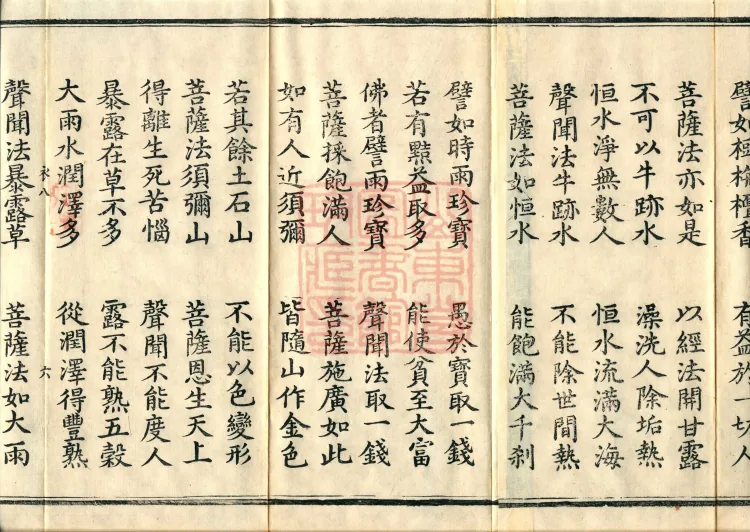 譬如栴檀香 有益於一切人
菩薩法亦如是 以經法開甘露
不可以牛跡水 澡洗人除垢熱
恒水淨無數人 恒水流滿大海
聲聞法牛跡水 不能除世間熱
菩薩法如恒水 能飽滿大千刹
譬如時雨珍寶 愚於寶取一錢
若有黠益取多 能使負至大富
佛者譬雨珍寶 聲聞法取一錢
菩薩採飽滿人 菩薩施廣如此
如有人近須彌 皆隨山作金色
若其餘土石山 不能以色變形
菩薩法須彌山 菩薩恩生天上
得離生死苦惱 聲聞不能度人
暴露在草不多 露不能熟五穀
大雨水潤澤多 從潤澤得豐熟
衣八 六
聲聞法暴露草 菩薩法如大雨